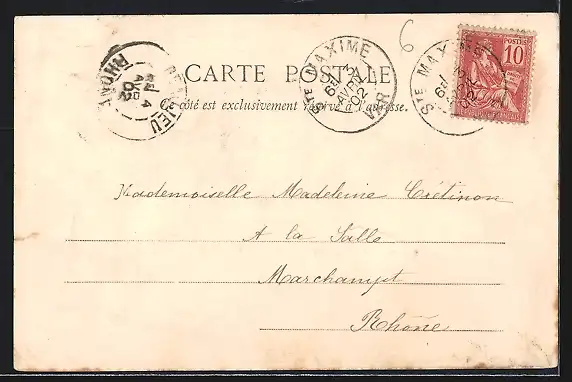 6
CARTE POSTALE
Ce côté est exclusivement réservé à l'adresse.
STE MAXIME
AVRIL
02
VAR
STE MAXIME
POSTES
10
RÉPUBLIQUE FRANÇAISE
BEAUJEU
4
02
RHONE
Mademoiselle Madeleine Crétinon
A la Salle
Marchampt
Rhône